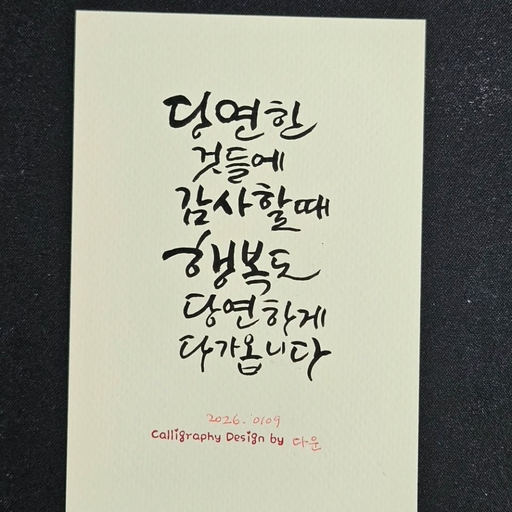 당연한
것들에
감사할때
행복도
당연하게
다가옵니다
2026. 0109
Calligraphy Design by 다운